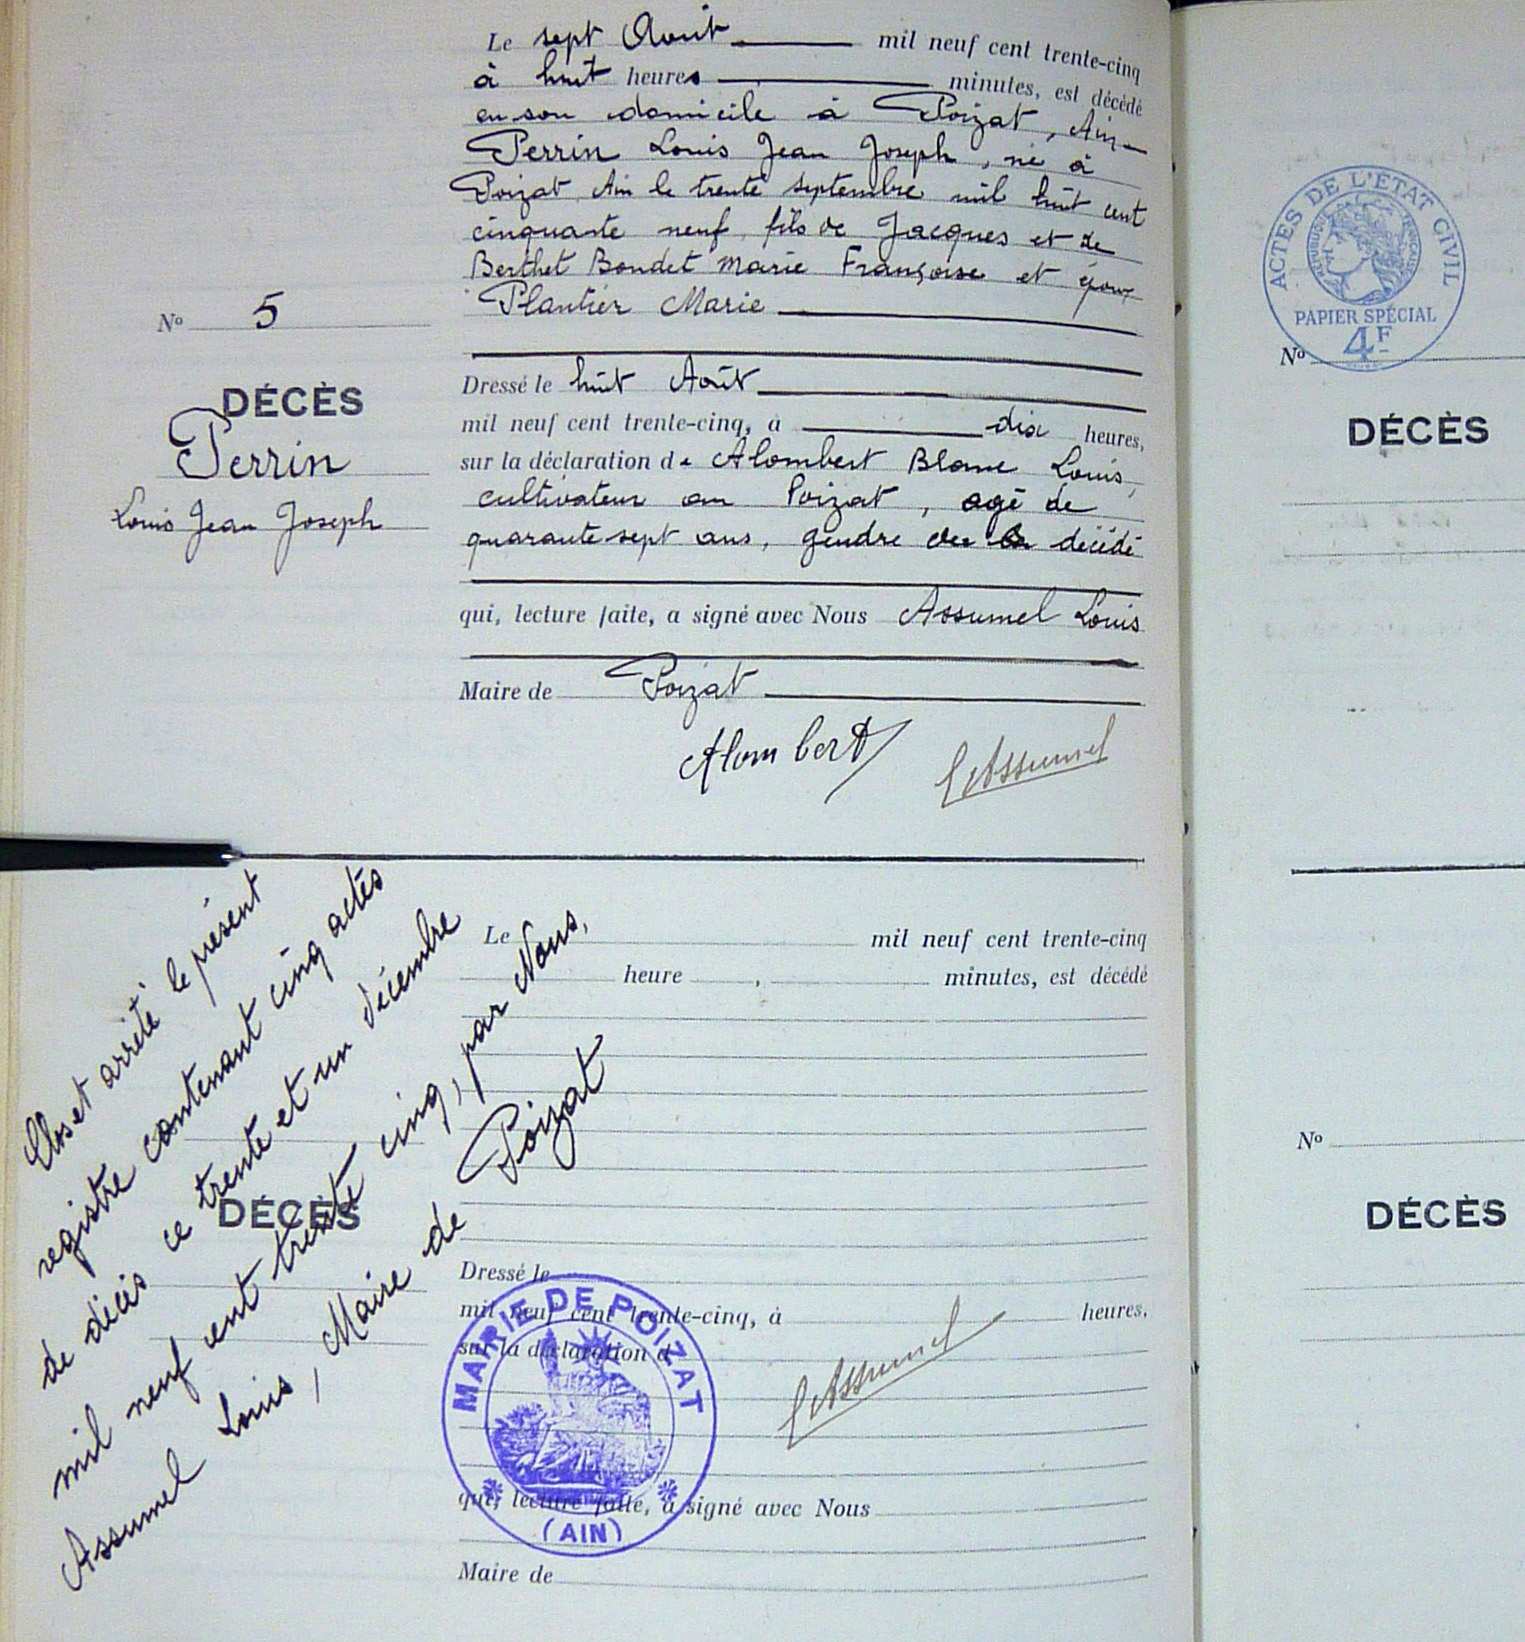 Le sept Août mil neuf cent trente-cinq
à huit heures minutes, est décédé
en son domicile à Poizat, Ain
Perrin Louis Jean Joseph, né à
Poizat Ain le trente septembre mil huit cent
cinquante neuf, fils de Jacques et de
Berthet Bondet Marie Françoise et époux
Plantier Marie
No 5
DÉCÈS
Perrin
Louis Jean Joseph
Dressé le huit Août
mil neuf cent trente-cinq, à dix heures,
sur la déclaration de Alombert Blanc Louis,
cultivateur au Poizat, agé de
quarante sept ans, gendre du décédé
qui, lecture faite, a signé avec Nous Assumel Louis
Maire de Poizat
Alombert LAssumel
Clos et arrêté le présent
registre contenant cinq actes
de décès ce trente et un décembre
mil neuf cent trente cinq, par Nous,
Assumel Louis, Maire de Poizat
Le mil neuf cent trente-cinq
heure , minutes, est décédé
DÉCÈS
Dressé le
mil neuf cent trente-cinq, à heures,
sur la déclaration d
qui, lecture faite, a signé avec Nous
Maire de
LAssumel
MARIE DE POIZAT
(AIN)
ACTES DE L'ÉTAT CIVIL
RÉPUBLIQUE FRANÇAISE
PAPIER SPÉCIAL
4F
No
DÉCÈS
No
DÉCÈS